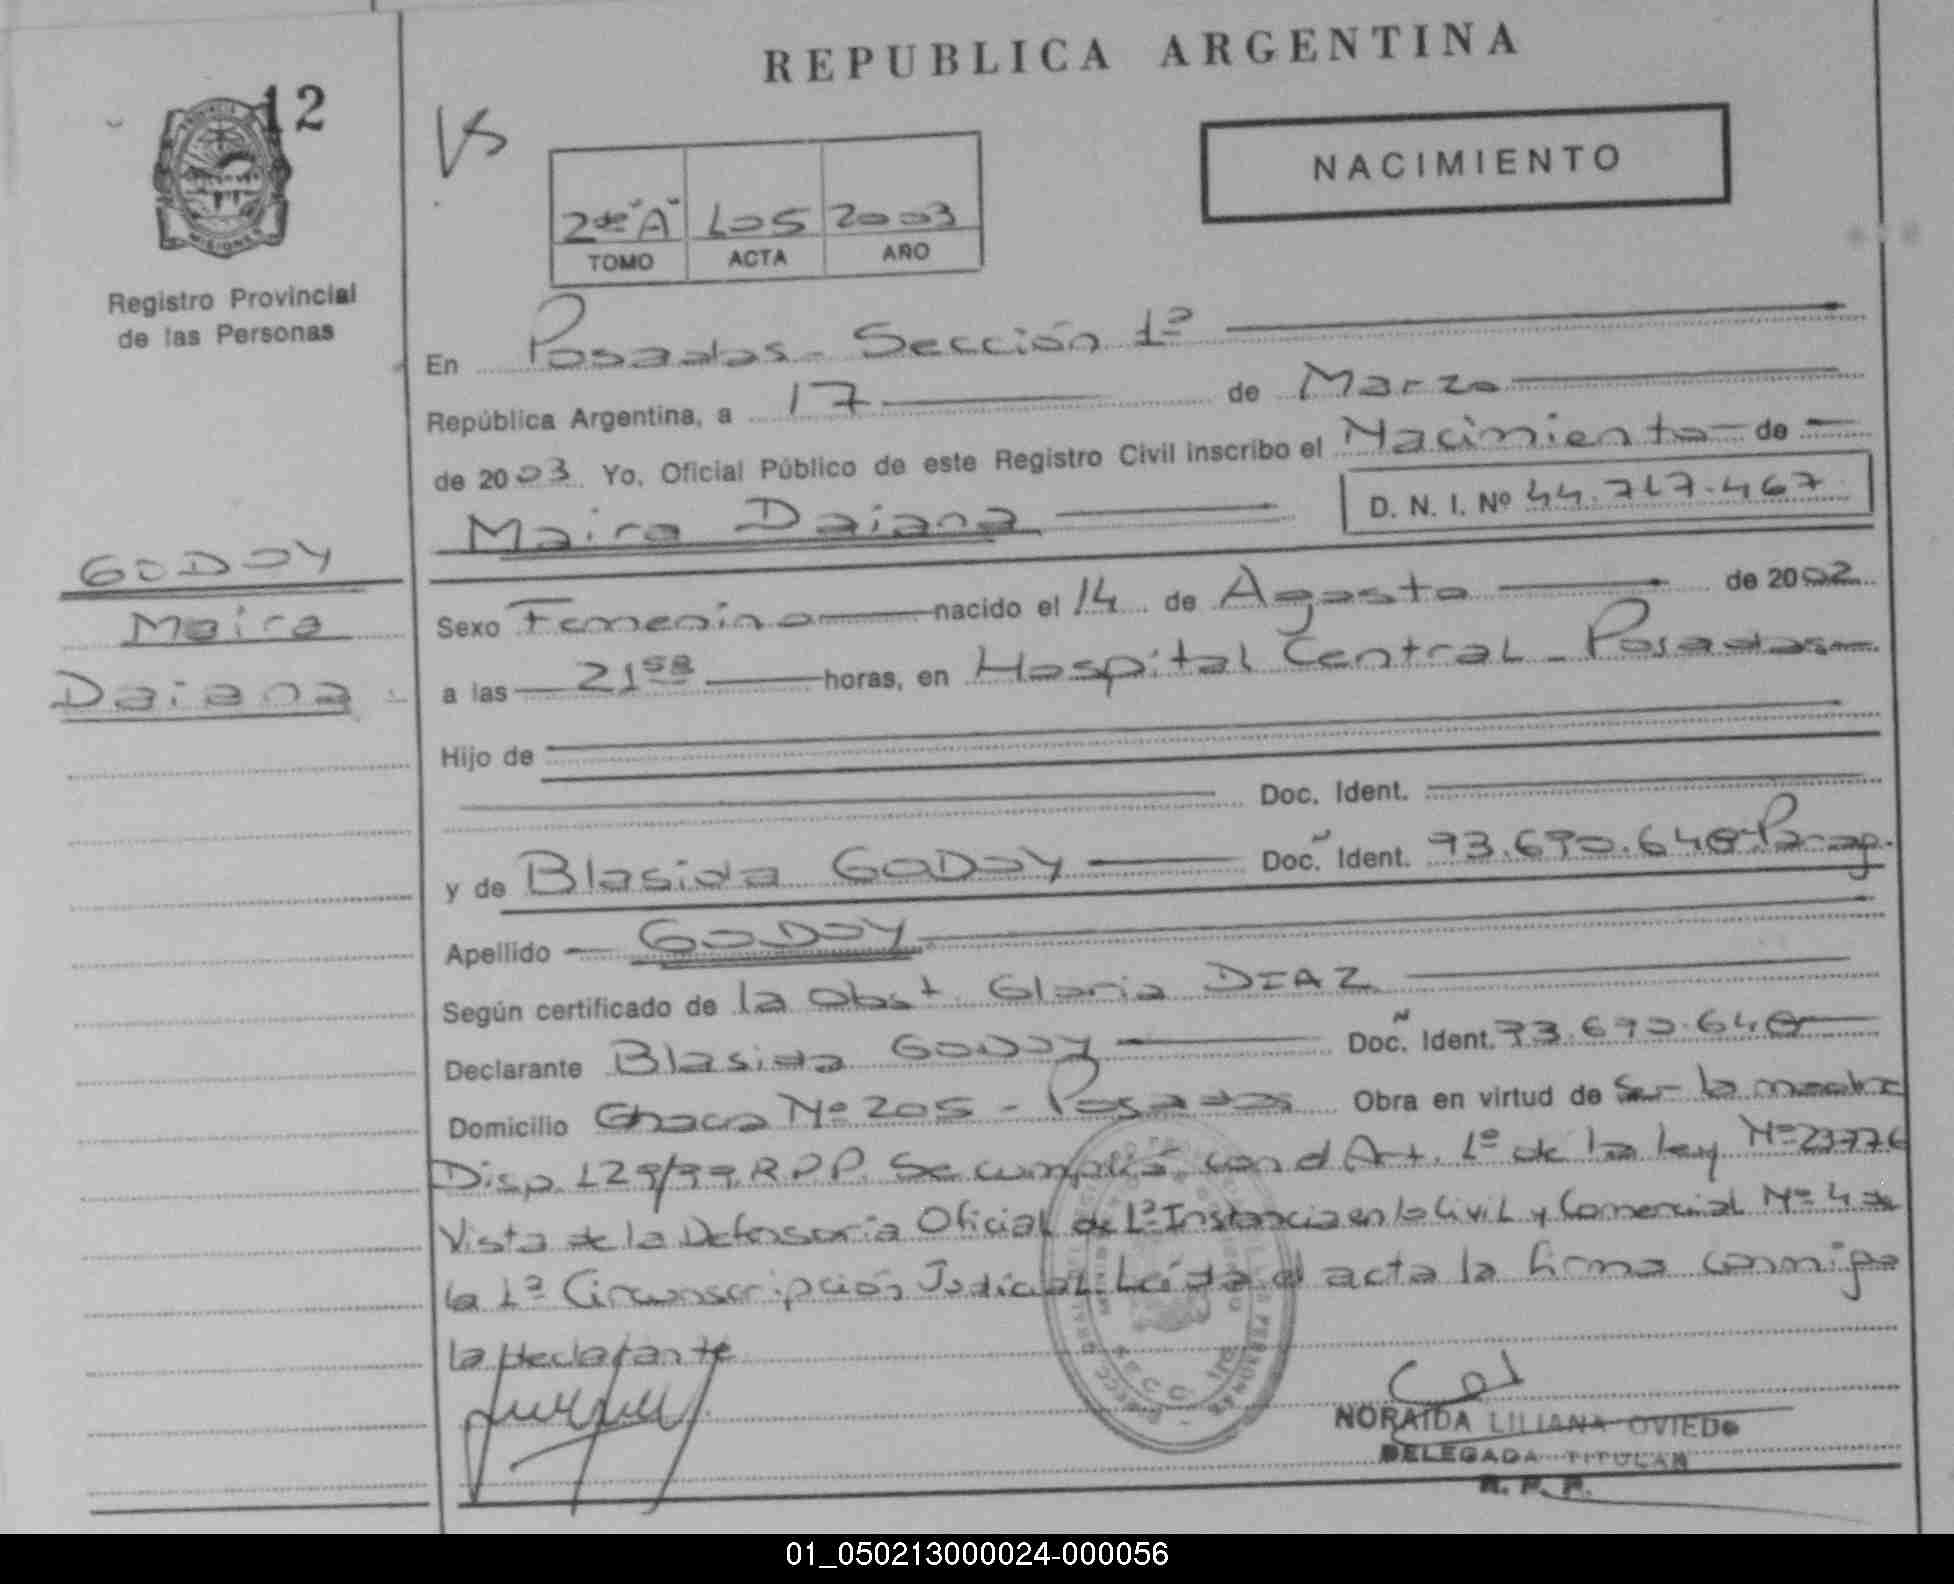 REPUBLICA ARGENTINA
12
PROVINCIA
MISIONES
Registro Provincial
de las Personas
NACIMIENTO
2do "A" 105 2003
TOMO ACTA AÑO
En Posadas - Sección 1ª
República Argentina, a 17 de Marzo
de 2003 Yo, Oficial Público de este Registro Civil inscribo el Nacimiento de
Maira Daiana D. N. I. Nº 44.717.467
GODOY
Maira
Daiana
Sexo Femenino nacido el 14 de Agosto de 2002
a las 21 58 horas, en Hospital Central - Posadas
Hijo de
Doc. Ident.
y de Blasida GODOY Doc. Ident. 93.690.640 Parag.
Apellido GODOY
Según certificado de la Obst. Gloria DIAZ
Declarante Blasida GODOY Doc. Ident. 93.690.640
Domicilio Chaco Nº 205 - Posadas Obra en virtud de Ser la madre
Disp. 129/99 R.P.P. Se cumplió con el Art. 1º de la ley Nº 23776
Vista de la Defensoría Oficial de 1ª Instancia en lo Civil y Comercial Nº 4 de
la 1ª Circunscripción Judicial. Leída el acta la firma conmigo
la declarante
NORAIDA LILIANA OVIEDO
DELEGADA TITULAR
R. P. P.
01_050213000024-000056